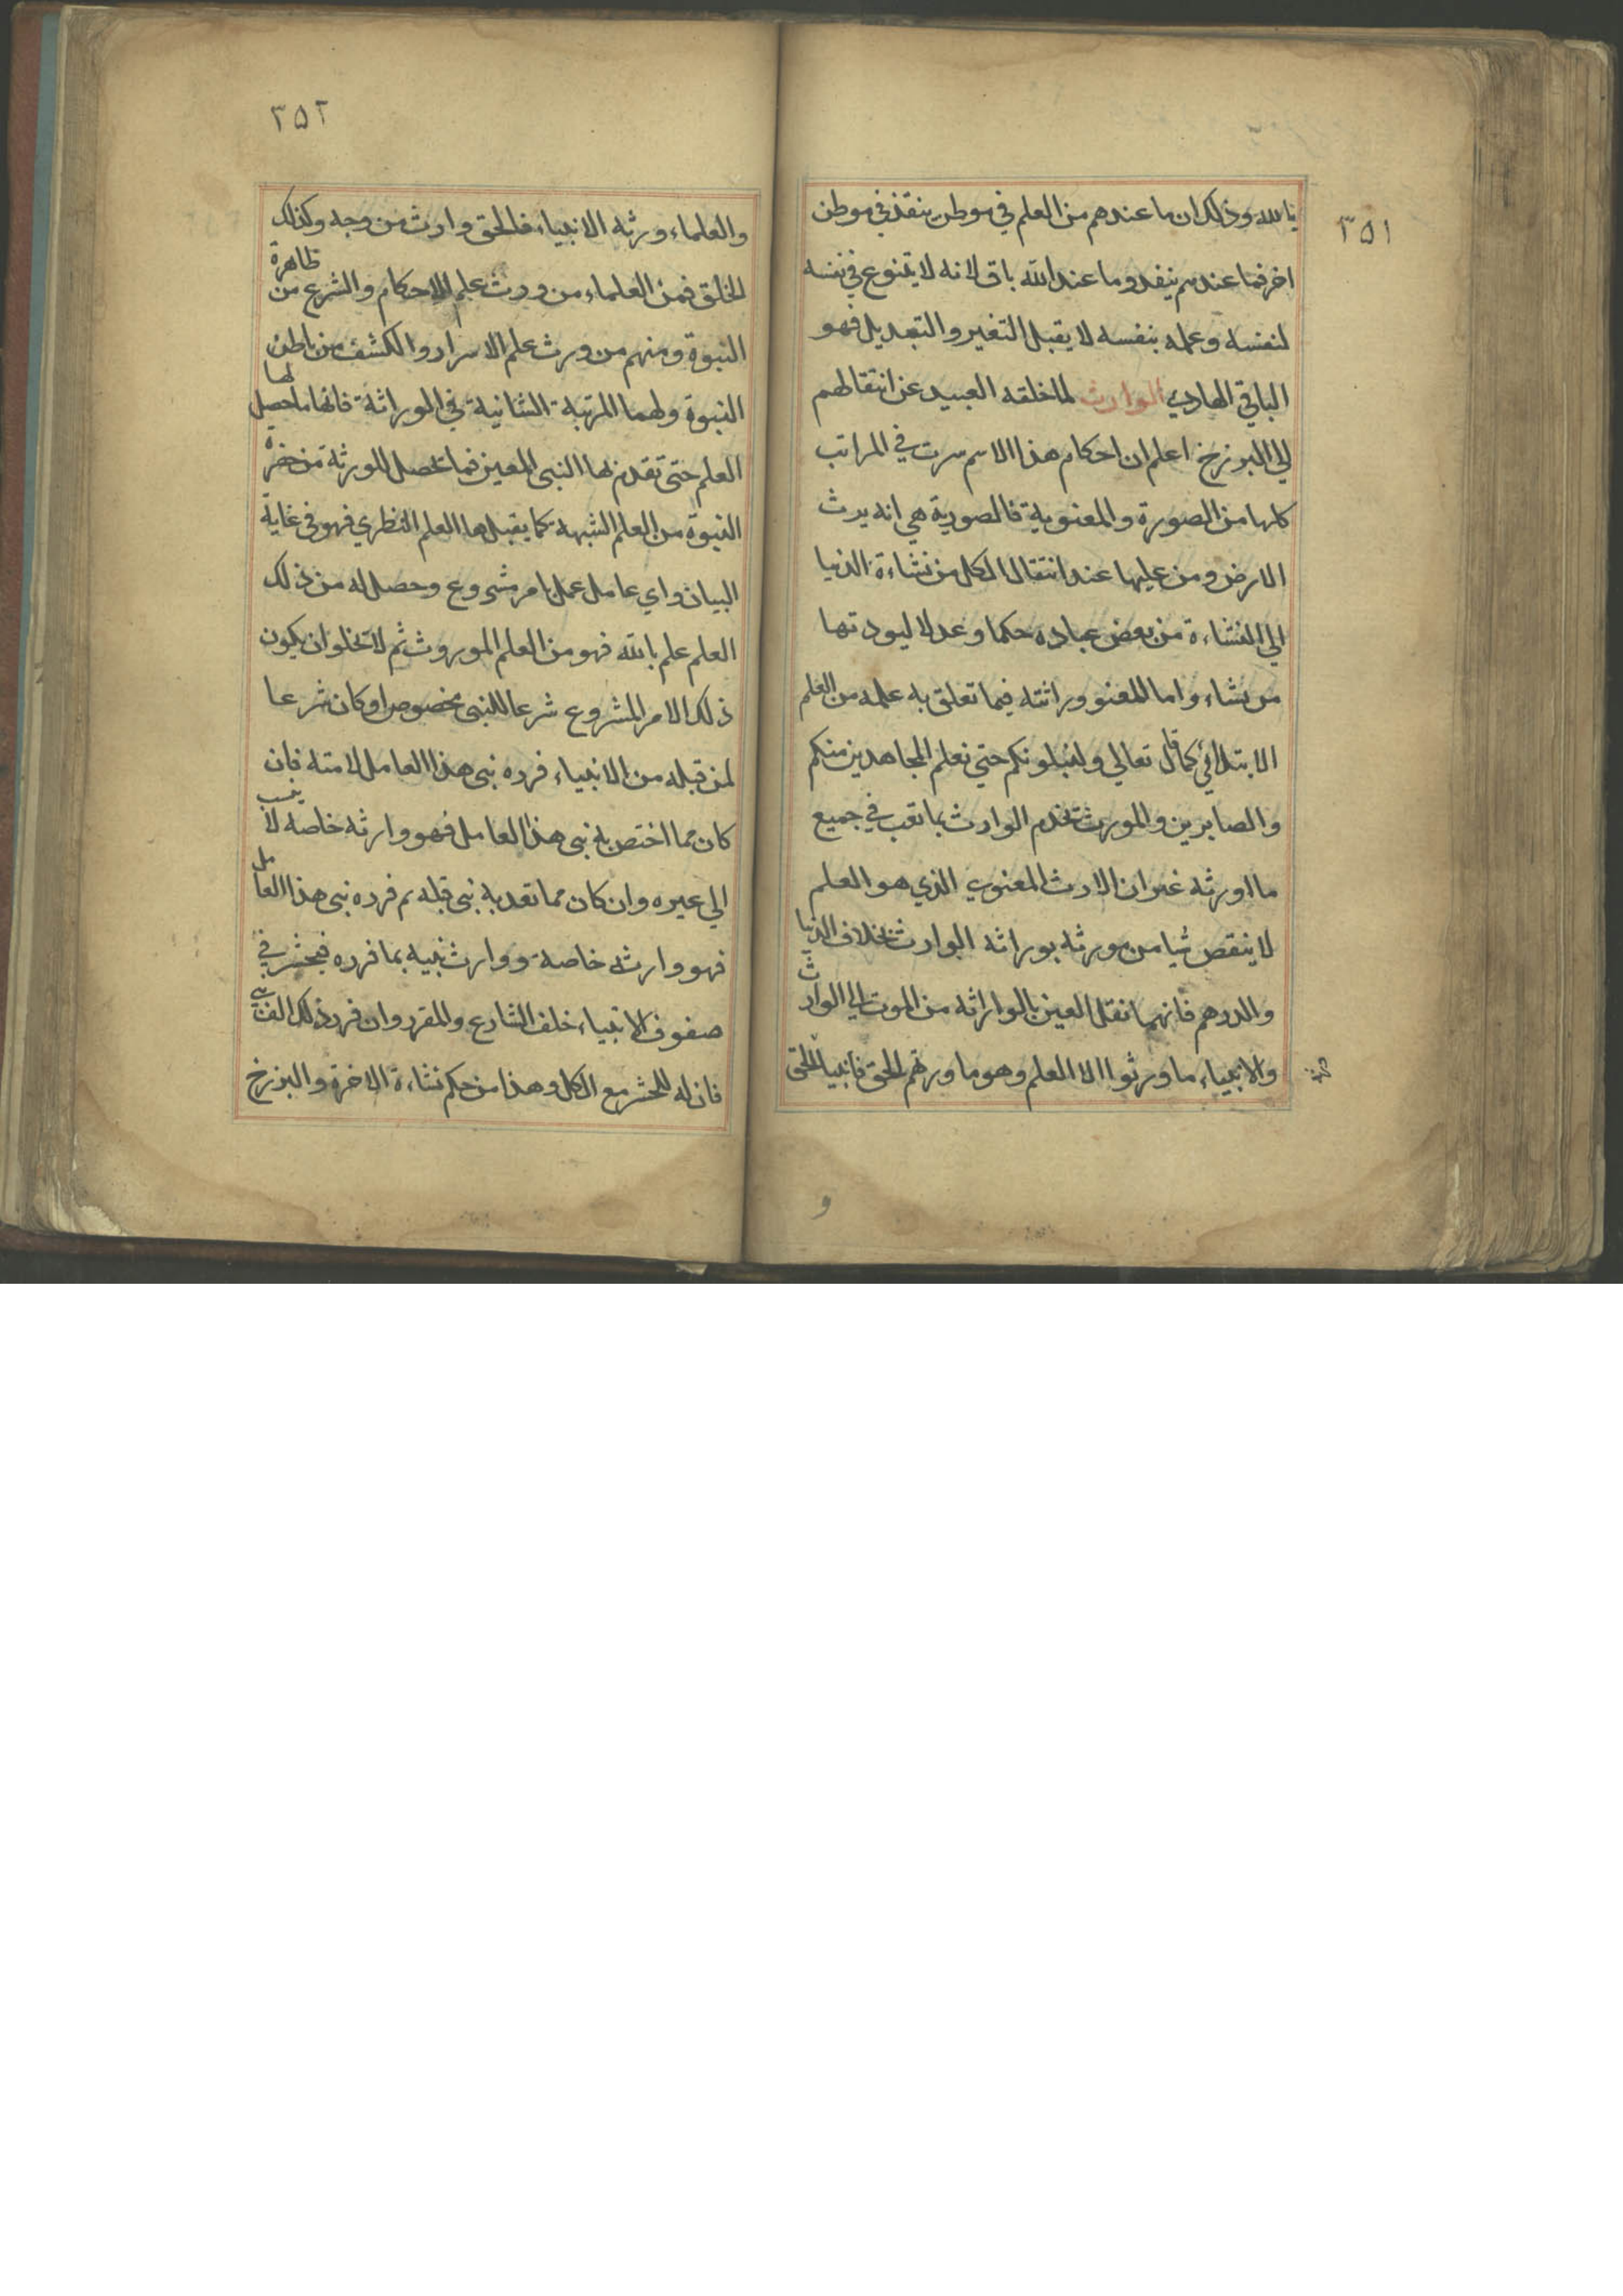 ٣٥١
بالله وذلك ان ما عندهم من العلم في موطن ينقذ في موطن
اخر فما عندهم ينفد وما عند الله باق لانه لا يتنوع في نفسه
لنفسه وعمله بنفسه لا يقبل التغير والتبديل فهو
الباقي الهادي الوارث لما خلقه العبيد عن انتقالهم
الي البرزخ اعلم ان احكام هذا الاسم سرت في المراتب
كلها من الصورة والمعنوية فالصورية هي انه يرث
الارض ومن عليها عند انتقال الكل من نشاءة الدنيا
الي النشاءة من بعض عباده حكما وعدلا ليود تها
من يشاء واما المعنو وراثته فيما تعلق به علمه من العلم
الابتلائي كما قال تعالي ولنبلونكم حتي نعلم المجاهدين منكم
والصابرين والمورث تخدم الوارث بما تعب في جميع
ما اورثه غير ان الارث المعنوي الذي هو العلم
لا ينقص شيا من مورثه بوراثه الوارث بخلاف الدنيا
والدرهم فانهما نقل العين بالواراثه من الموت الي الوارث
والانبياء ما ورثوا الا العلم وهو ما ورثهم الحق فانبيا الحق
و
٣٥٢
والعلماء ورثه الانبياء فالحق وارث من وجه وكذلك
الخلق فمن العلماء من ورث علم الاحكام والشرع من ظاهرة
النبوة ومنهم من ورث علم الاسرار والكشف من باطن
النبوة ولهما المرتبة الثانية في الوراثة فانها ما حصل لها
العلم حتى تقدم لها النبى المعين فما تحصل للورثة من حضرة
النبوة من العلم الشبهة كما يقبلها العلم النظري فهو في غاية
البيان واي عامل عمل بامر مشروع وحصل له من ذلك
العلم علم بالله فهو من العلم الموروث ثم لا تخلو ان يكون
ذلك الامر المشروع شرعا للنبى مخصوص او كان شرعا
لمن قبله من الانبياء فرده نبى هذا العامل لامته فان
كان مما اختص به نبى هذا العامل فهو وارثه خاصه لا ينسب
الي عيره وان كان مما تعد به نبى قبله ثم فرده نبى هذا العامل
فهو وارثه خاصة ووارث نبيه بما فرده فيحشر في
صفوف الانبياء خلف الشارع والمقرر وان فرد ذلك النبي
فان له للحشر مع الكل وهذا من حكم نشاءة الاخرة والبرزخ